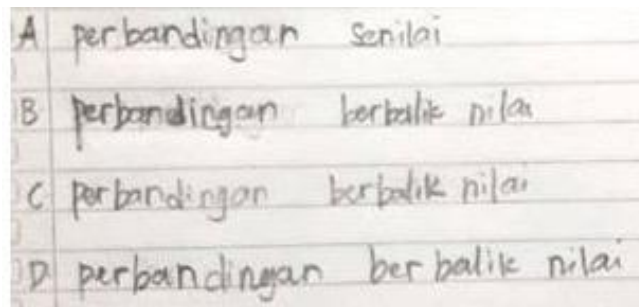 A perbandingan senilai
B perbandingan berbalik nilai
C perbandingan berbalik nilai
D perbandingan berbalik nilai